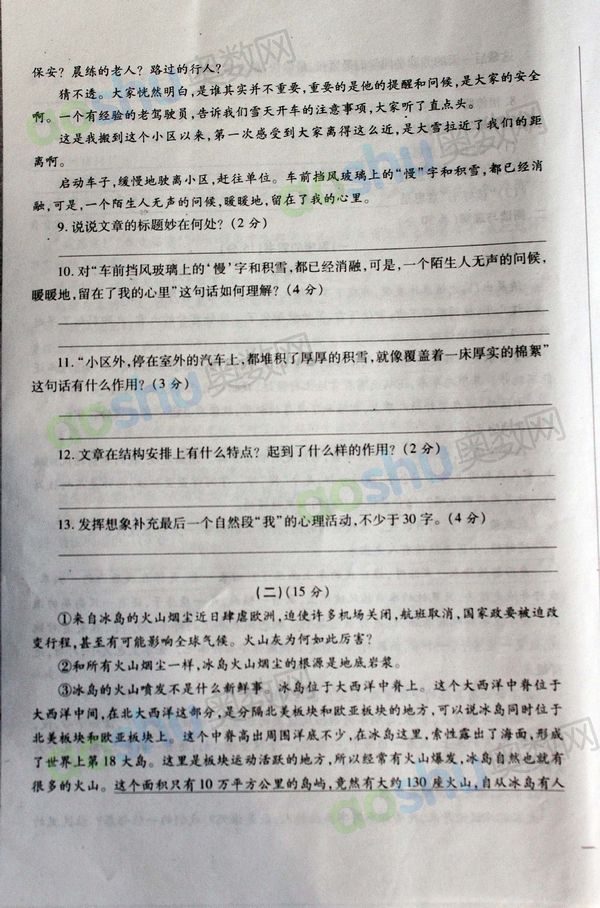 保安？晨练的老人？路过的行人？
猜不透。大家恍然明白，是谁其实并不重要，重要的是他的提醒和问候，是大家的安全
啊。一个有经验的老驾驶员，告诉我们雪天开车的注意事项，大家听了直点头。
这是我搬到这个小区以来，第一次感受到大家离得这么近，是大雪拉近了我们的距
离啊。
启动车子，缓慢地驶离小区，赶往单位。车前挡风玻璃上的“慢”字和积雪，都已经消
融，可是，一个陌生人无声的问候，暖暖地，留在了我的心里。
9. 说说文章的标题妙在何处？（2 分）
10. 对“车前挡风玻璃上的‘慢’字和积雪，都已经消融，可是，一个陌生人无声的问候，
暖暖地，留在了我的心里”这句话如何理解？（4 分）
11. “小区外，停在室外的汽车上，都堆积了厚厚的积雪，就像覆盖着一床厚实的棉絮”
这句话有什么作用？（3 分）
12. 文章在结构安排上有什么特点？起到了什么样的作用？（2 分）
13. 发挥想象补充最后一个自然段“我”的心理活动，不少于 30 字。（4 分）
（二）（15 分）
①来自冰岛的火山烟尘近日肆虐欧洲，迫使许多机场关闭，航班取消，国家政要被迫改
变行程，甚至有可能影响全球气候。火山灰为何如此厉害？
②和所有火山烟尘一样，冰岛火山烟尘的根源是地底岩浆。
③冰岛的火山喷发不是什么新鲜事。冰岛位于大西洋中脊上。这个大西洋中脊位于
大西洋中间，在北大西洋这部分，是分隔北美板块和欧亚板块的地方，可以说冰岛同时位于
北美板块和欧亚板块上。这个中脊高出周围洋底不少，在冰岛这里，索性露出了海面，形成
了世界上第 18 大岛。这里是板块运动活跃的地方，所以经常有火山爆发，冰岛自然也就有
很多的火山。这个面积只有 10 万平方公里的岛屿，竟然有大约 130 座火山，自从冰岛有人
aoshu奥数网
aoshu奥数网
aoshu奥数网
aoshu奥数网
aoshu奥数网
aoshu奥数网